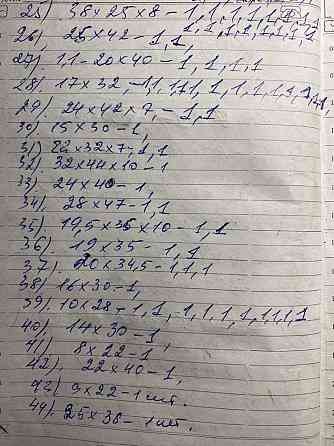 25) 38×25×8 – 1, 1, 1, 1, 1, 1, 1,
26) 25×42 – 1, 1, 1, 1, 1, 1, 1, 1, 1,
27) 1,1 – 20×40 – 1, 1, 1, 1
28) 17×32, – 1, 1, 1, 1, 1, 1, 1, 1, 1, 1, 1,
29). 24×42×7, – 1, 1
30) 15×50 – 1,
31) 22×32×7, 1, 1
32). 32×44×10 – 1
33). 24×40 – 1,
34). 28×47 – 1, 1
35). 19,5×35×10 – 1, 1
36). 19×35 – 1, 1
37). 20×34,5 – 1, 1, 1
38) 16×30 – 1,
39). 10×28 – 1, 1, 1, 1, 1, 1, 1, 1, 1
40). 14×30 – 1,
41) 8×22 – 1
42). 22×40 – 1,
42) 9×22 – 1 шт.
44). 25×36 – 1 шт.